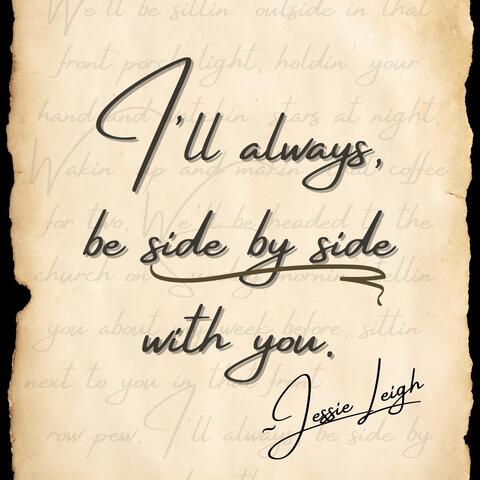 We'll be sittin' outside in that
front porch light, holdin' your
I'll always,
hand and catchin' stars at night.
Wakin' up and makin' coffee
be side by side
for two. We'll be headed to the
church on Sunday mornin' tellin'
with you.
you about week before, sittin'
next to you in that front
~Jessie Leigh
row pew. I'll always be side by